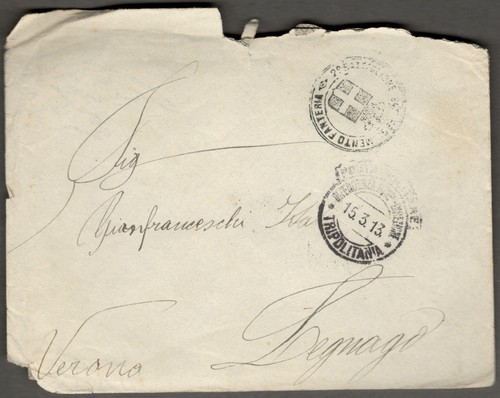 Sig
Gianfranceschi Ida
Legnago
Verona
2º BATTAGLIONE REGGIMENTO FANTERIA
POSTA MILITARE
15.3.13.
* TRIPOLITANIA *